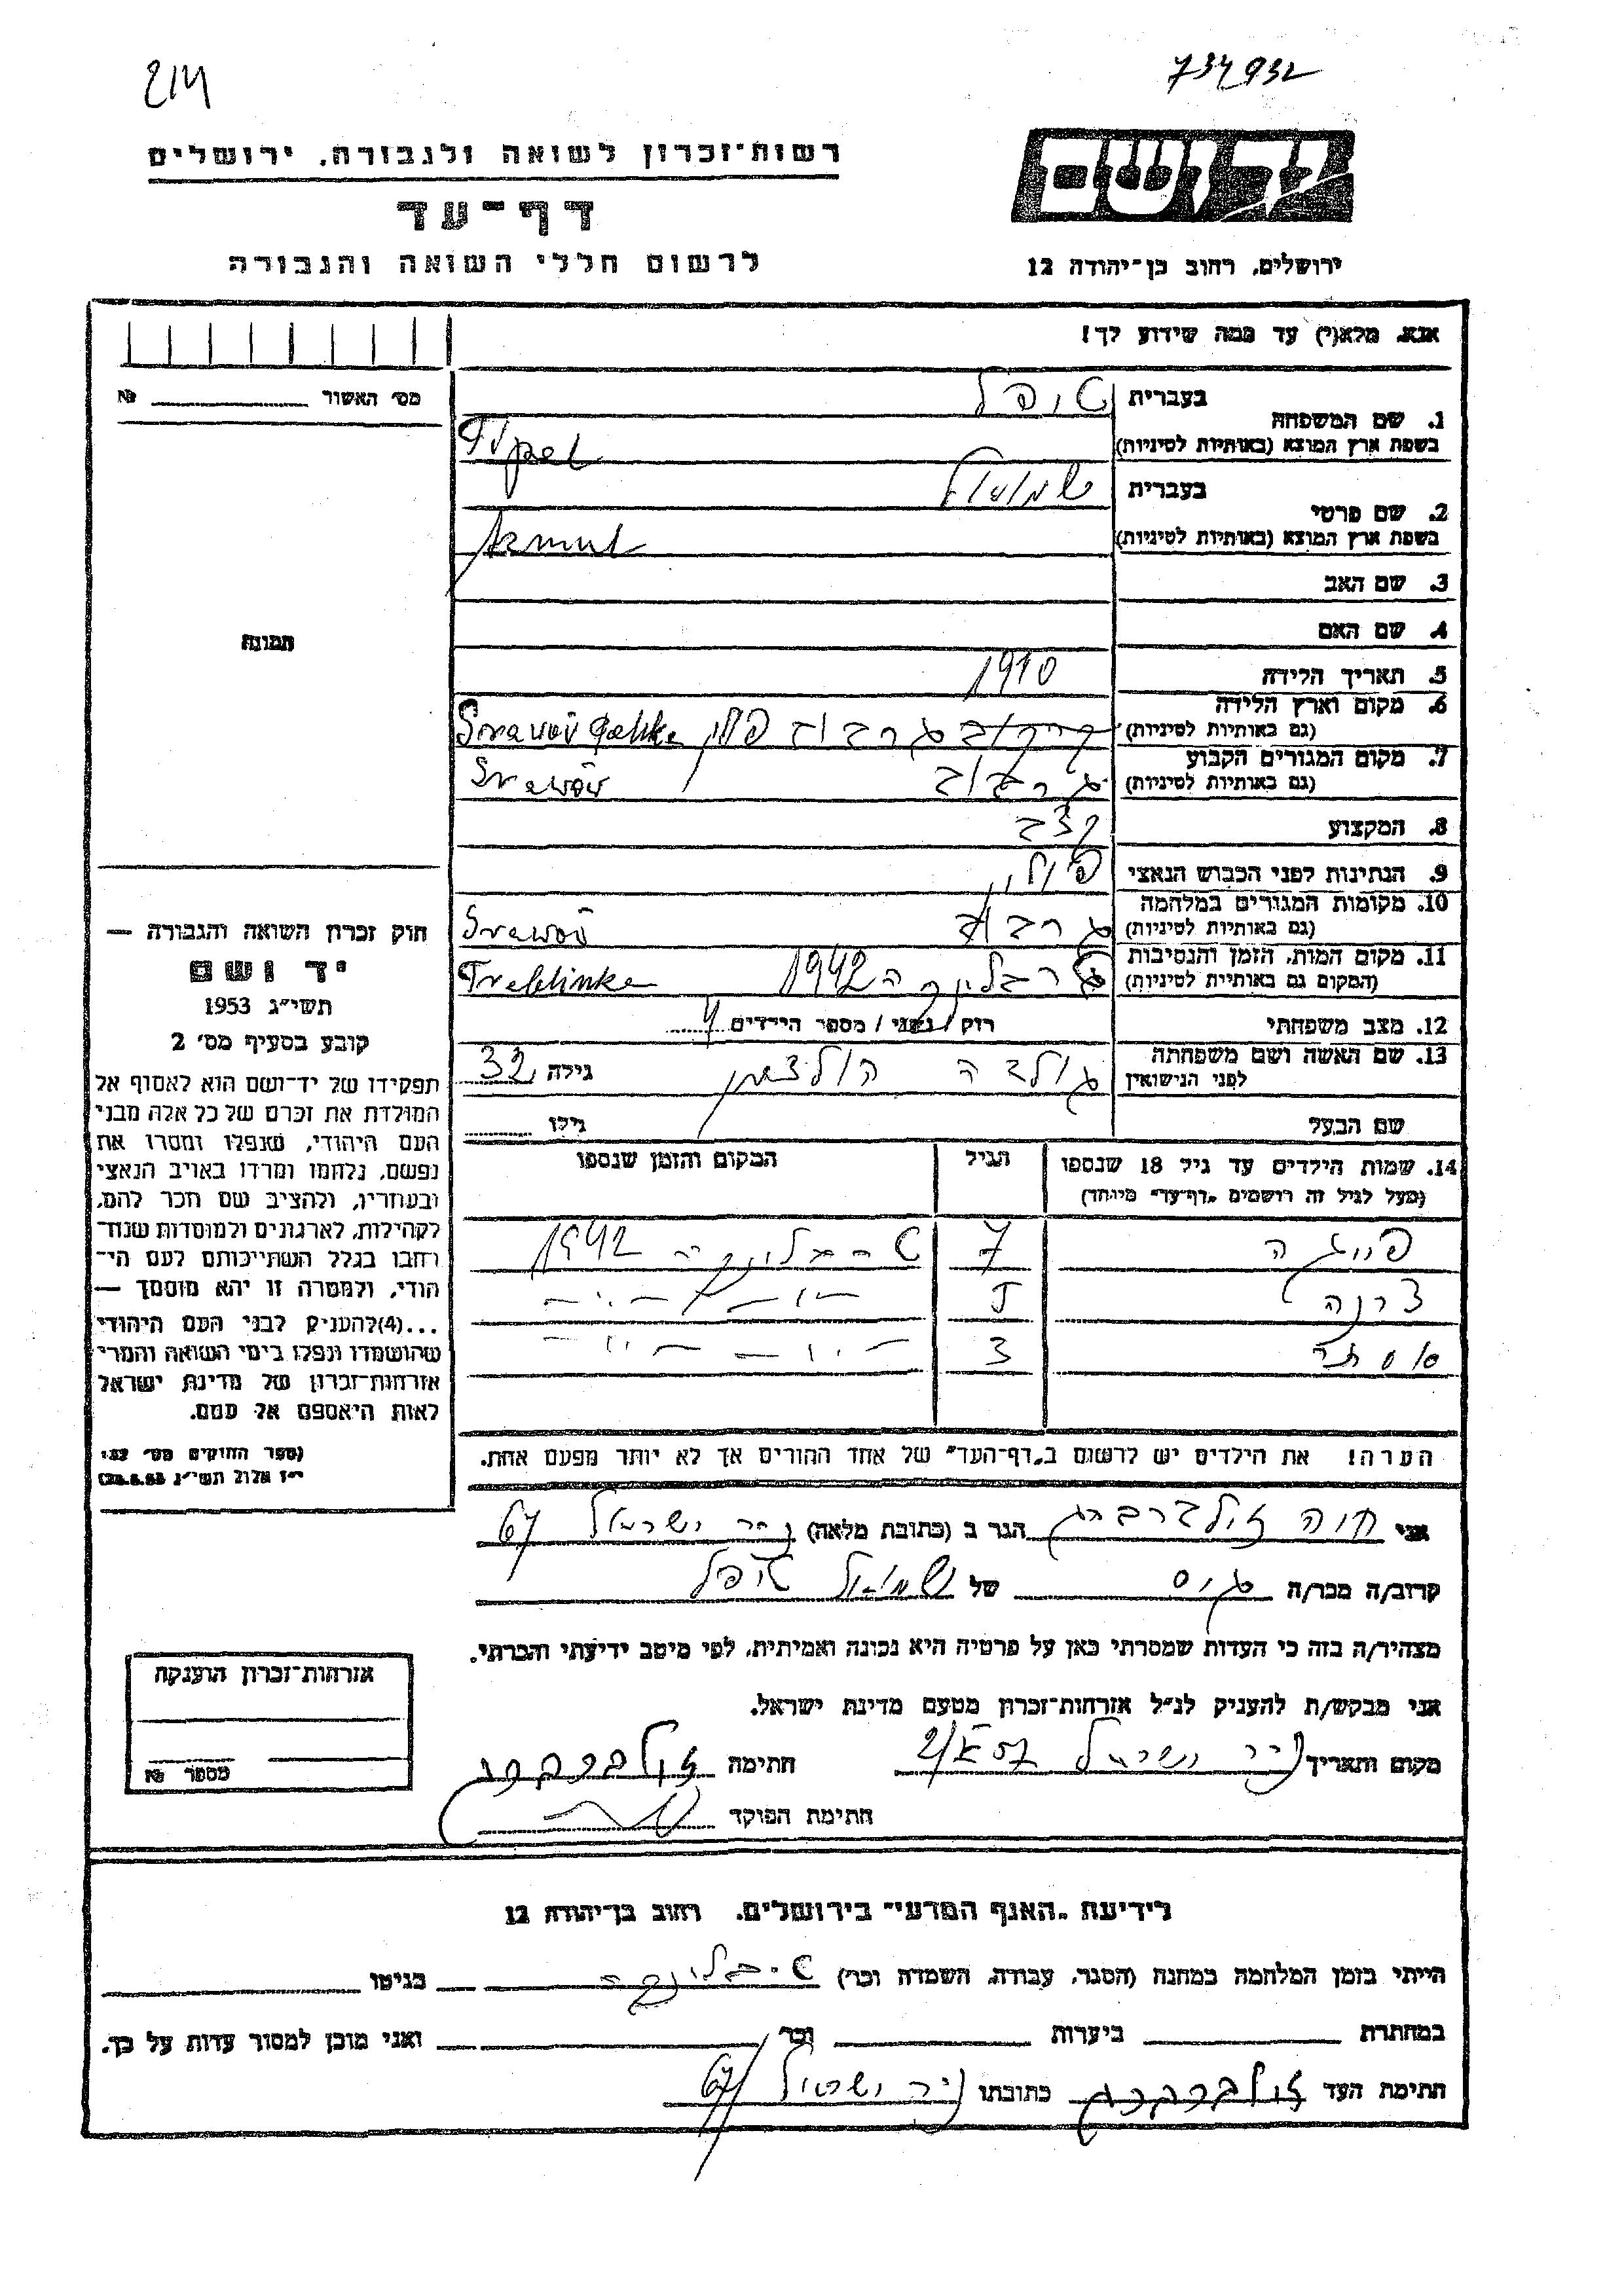 214
734932
רשות־זכרון לשואה ולגבורה. ירושלים
דף־עד
לרשום חללי השואה והגבורה
ירושלים, רחוב בן־יהודה 12
אנא, מלא(י) עד כמה שידוע לך!
מס׳ האשור №
בעברית טופל
1. שם המשפחה
בשפת ארץ המוצא (באותיות לטיניות) Tupel
בעברית שמואל
2. שם פרטי
בשפת ארץ המוצא (באותיות לטיניות)
3. שם האב
4. שם האם
תמונה
5. תאריך הלידה 1910
6. מקום וארץ הלידה
(גם באותיות לטיניות) גרבוב פולין
7. מקום המגורים הקבוע
(גם באותיות לטיניות) גרבוב
8. המקצוע קצב
9. הנתינות לפני הכבוש הנאצי פולין
10. מקומות המגורים במלחמה
(גם באותיות לטיניות) גרבוב
11. מקום המות, הזמן והנסיבות
(המקום גם באותיות לטיניות) טרבלינקה 1942 Treblinke
12. מצב משפחתי רוק / נשוי / מספר הילדים 4
13. שם האשה ושם משפחתה
לפני הנישואין גולדה הולצמן גילה 32
שם הבעל גילו
14. שמות הילדים עד גיל 18 שנספו הגיל המקום והזמן שנספו
(מעל לגיל זה רושמים „דף־עד״ מיוחד)
פייגה 7 טרבלינקה 1942
5 —״—״—
אסתר 3 —״—״—
הערה! את הילדים יש לרשום ב„דף־העד״ של אחד ההורים אך לא יותר מפעם אחת.
חוק זכרון השואה והגבורה —
יד ושם
תשי״ג 1953
קובע בסעיף מס׳ 2
תפקידו של יד־ושם הוא לאסוף אל
המולדת את זכרם של כל אלה מבני
העם היהודי, שנפלו ומסרו את
נפשם, נלחמו ומרדו באויב הנאצי
ובעוזריו, ולהציב שם וזכר להם,
לקהילות, לארגונים ולמוסדות שנח־
רחבו בגלל השתייכותם לעם הי־
הודי, ולמטרה זו יהא מוסמך —
...(4)להעניק לבני העם היהודי
שהושמדו ונפלו בימי השואה והמרי
אזרחות־זכרון של מדינת ישראל
לאות היאספם אל עמם.
(ספר החוקים מס׳ 132
י״ז אלול תשי״ג 28.8.53)
אני חוה זילברברג הגר ב (כתובת מלאה) ניר ישראל 67
קרוב/ה מכר/ה גיס של שמואל טופל
מצהיר/ה בזה כי העדות שמסרתי כאן על פרטיה היא נכונה ואמיתית, לפי מיטב ידיעתי והכרתי.
אני מבקש/ת להעניק לנ״ל אזרחות־זכרון מטעם מדינת ישראל.
מקום ותאריך ניר ישראל חתימה זילברברג
חתימת הפוקד
אזרחות־זכרון הוענקה
מספר №
לידיעת „האגף המדעי״ בירושלים. רחוב בן־יהודה 12
הייתי בזמן המלחמה במחנה (הסגר, עבודה, השמדה וכו׳) טרבלינקה בגיטו
במחתרת ביערות וכו׳ ואני מוכן למסור עדות על כך.
חתימת העד זילברברג כתובתו ניר ישראל 67